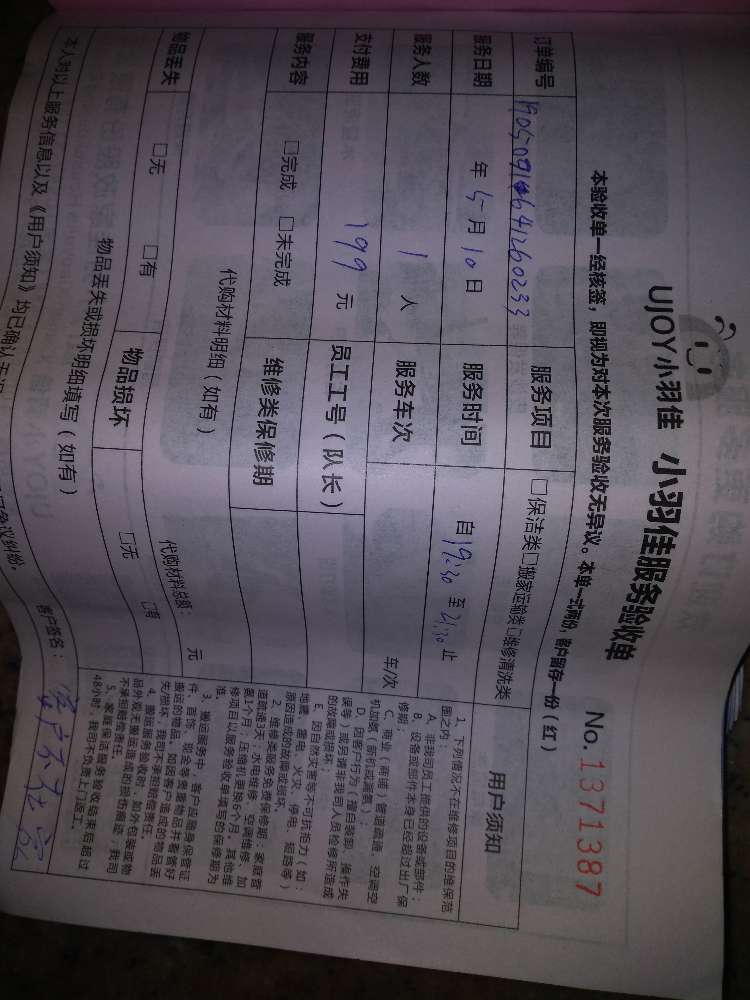 UJOY小羽佳 小羽佳服务验收单
No. 1371387
本验收单一经核签，即视为对本次服务验收无异议。本单一式两份，客户留存一份（红）
订单编号 服务项目 □保洁类□搬家运输类□维修清洗类
服务日期 年 5月 10日 服务时间 自 19:30 至 21:30 止
服务人数 1 人 服务车次 车/次
支付费用 199 元 员工工号（队长）
服务内容 □完成 □未完成 维修类保修期
代购材料明细（如有） 代购材料总额： 元
物品丢失 □无 □有 物品损坏 □无 □有
物品丢失或损坏明细填写（如有）
本人对以上服务信息以及《用户须知》均已确认
争议纠纷。
客户签名： 客户不在家
用户须知
1、下列情况不在维修项目的维保范
围之内：
A、非我司员工提供的设备或部件；
B、设备或部件本身已经超过出厂保
修期；
C、商业（商铺）管道疏通、空调空
机加氨（新机或漏氨）；
D、因客户行为（擅自装卸、操作失
误等）或另请非我司人员检修所造成
的故障或损坏；
E、因自然灾害等不可抗拒力（如：
地震、雷电、火灾、停电、短路等）
原因造成的故障或损坏。
2、维修类服务免费保修期：家庭管
道疏通3天；水电维修、空调维修、加
氨1个月；压缩机更换6个月。其他维
修项目以服务验收单填写的保修期为
准。
3、搬运服务中，客户应随身保管证
件、首饰、现金等贵重物品并看管好
搬运的物品。如因客户造成的物品丢
失/损坏，我司不承担赔偿责任。
4、搬运服务验收时，如外包装或物
品外观无搬运造成的损伤痕迹，我司
不承担赔偿责任。
5、家庭保洁服务验收结束后超过
48小时，我司不负责上门返工。